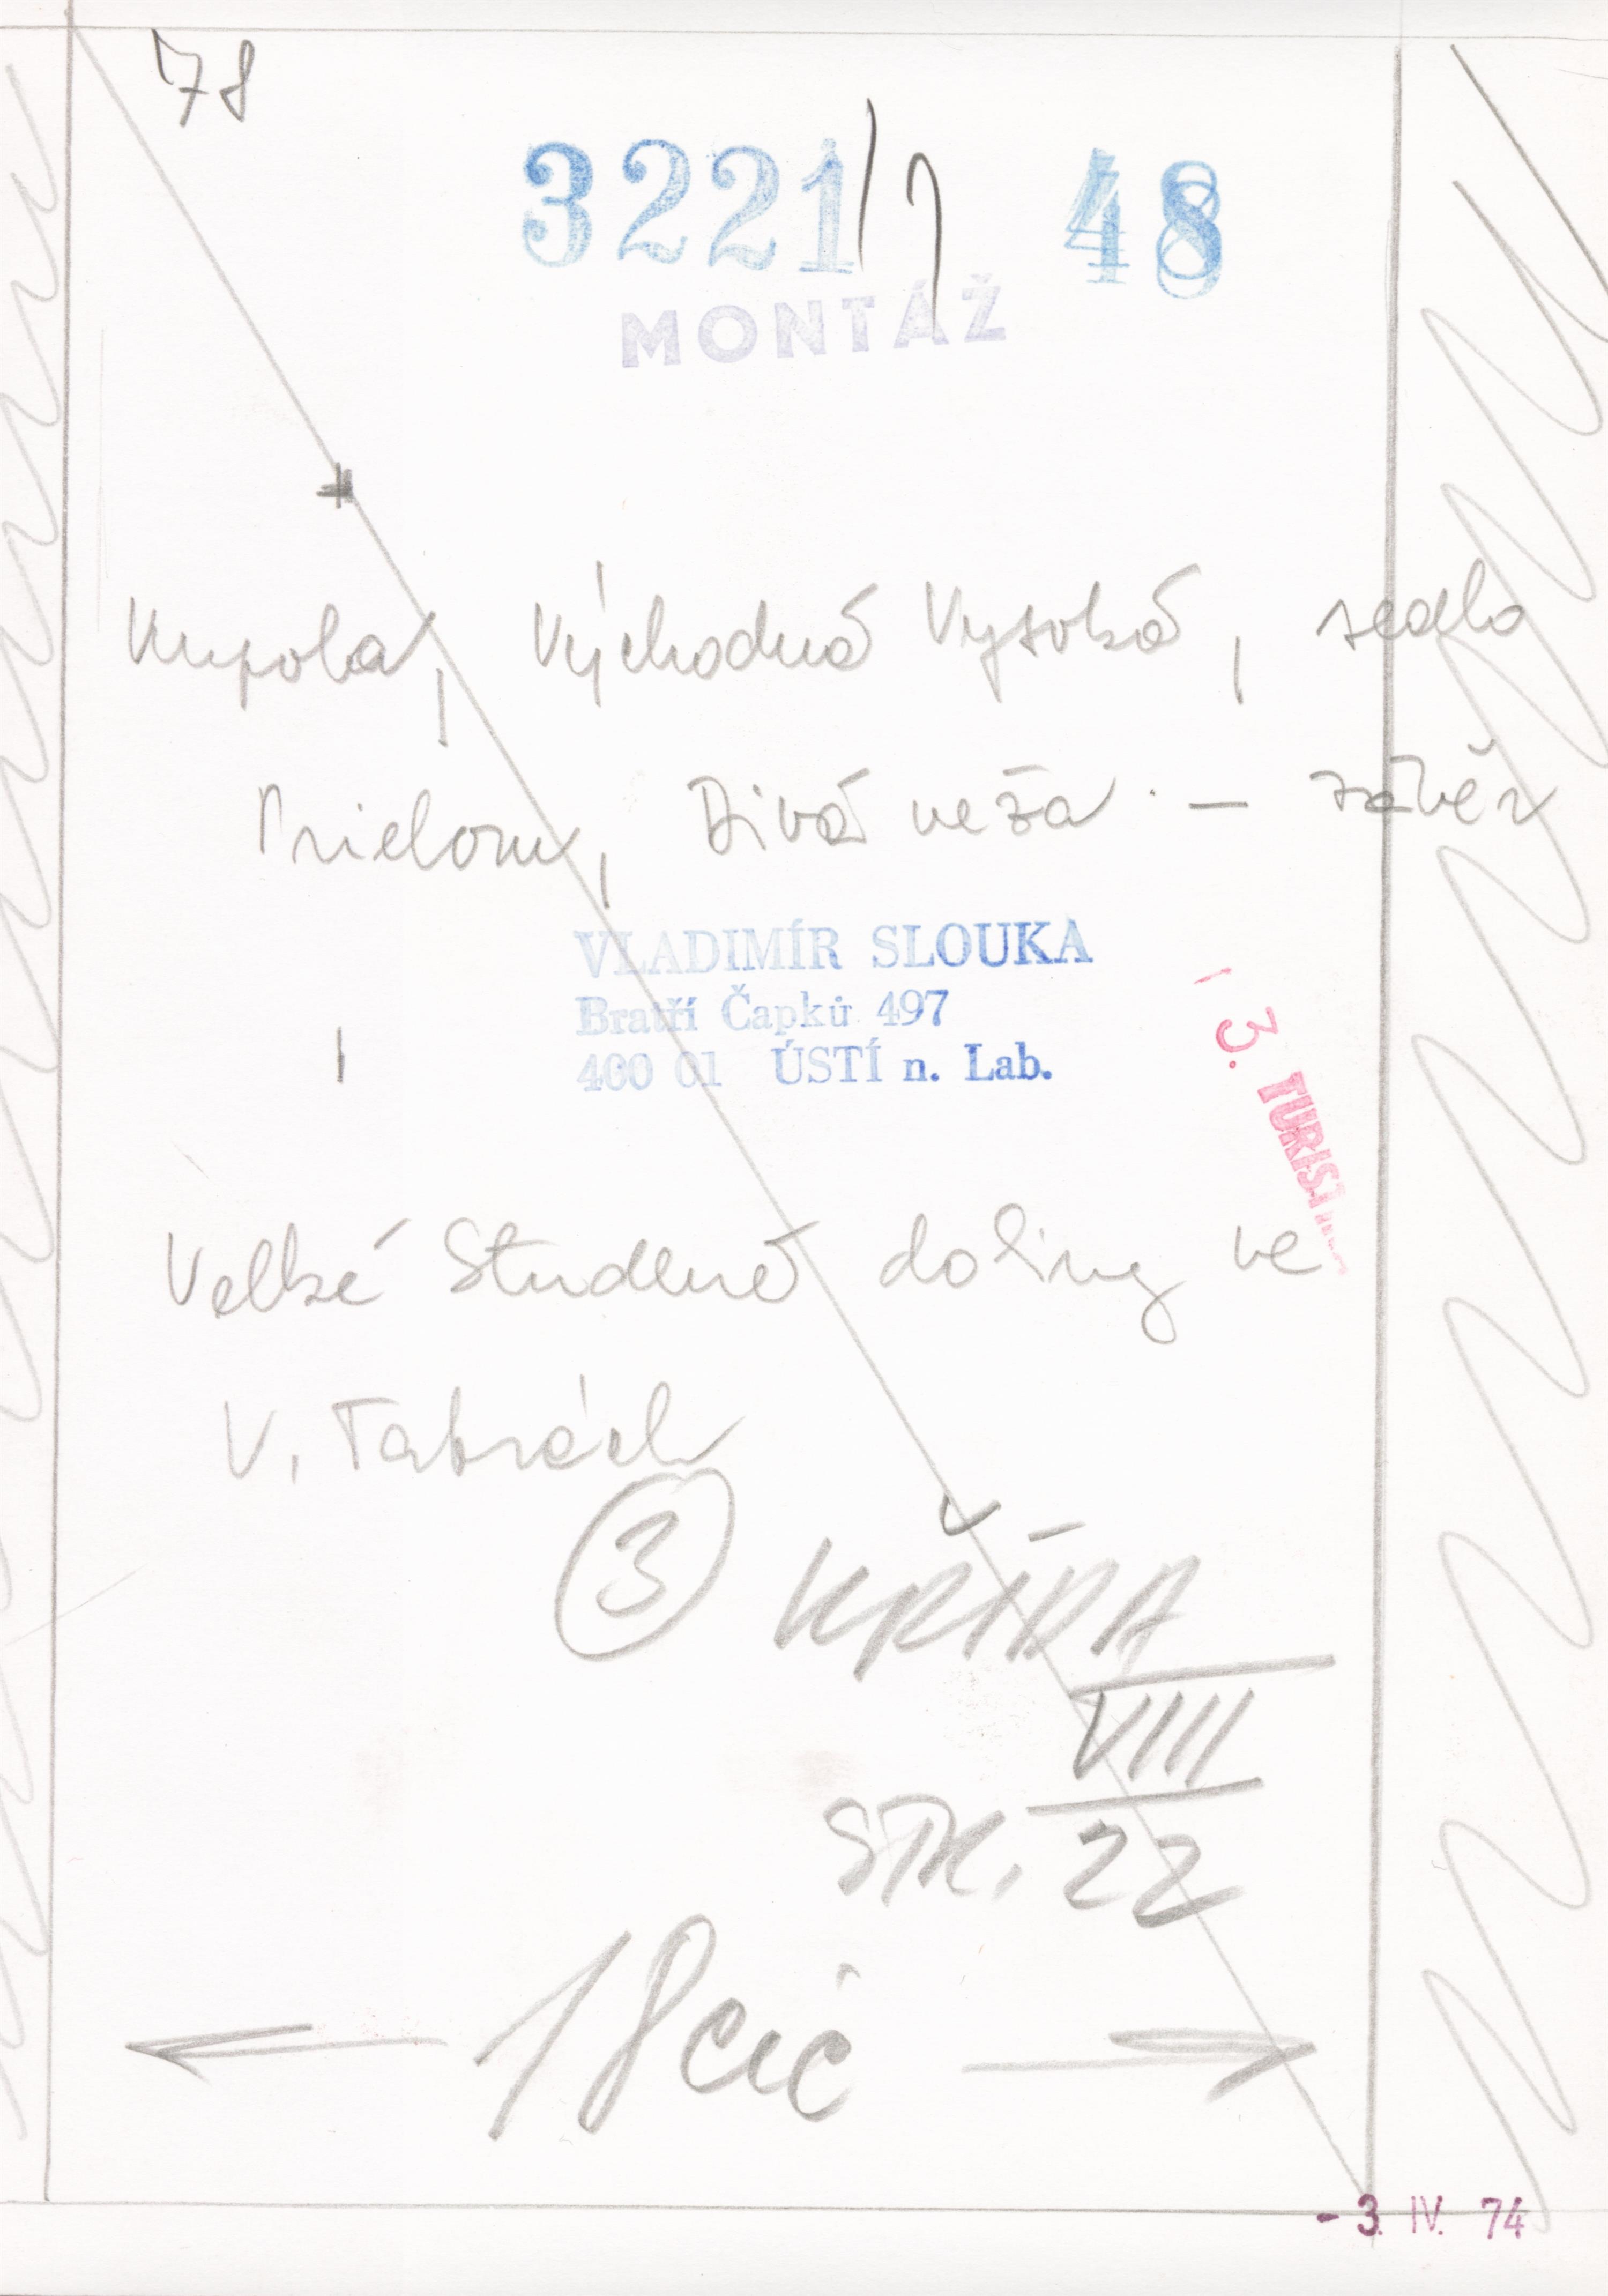 78
3221/7 48
MONTÁŽ
Kupola, Východná Vysoká, sedlo
Prielom, Divá veža – závěr
VLADIMÍR SLOUKA
Bratří Čapků 497
400 01 ÚSTÍ n. Lab.
3. TURIST
Velké Studené doliny ve
V. Tatrách
3 KŘÍDA
VIII
STR. 22
18 cic
- 3. IV. 74